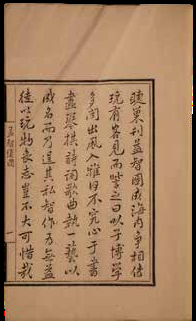 聽巢刊益智圖成海内爭相傳
玩有客見而訾之曰以子博學
多聞出風入雅日不究心于書
畫琴棋詩詞歌曲執一藝以
成名而乃逞其私智作為無益
徒以玩物喪志豈不大可惜哉
益智圖
一